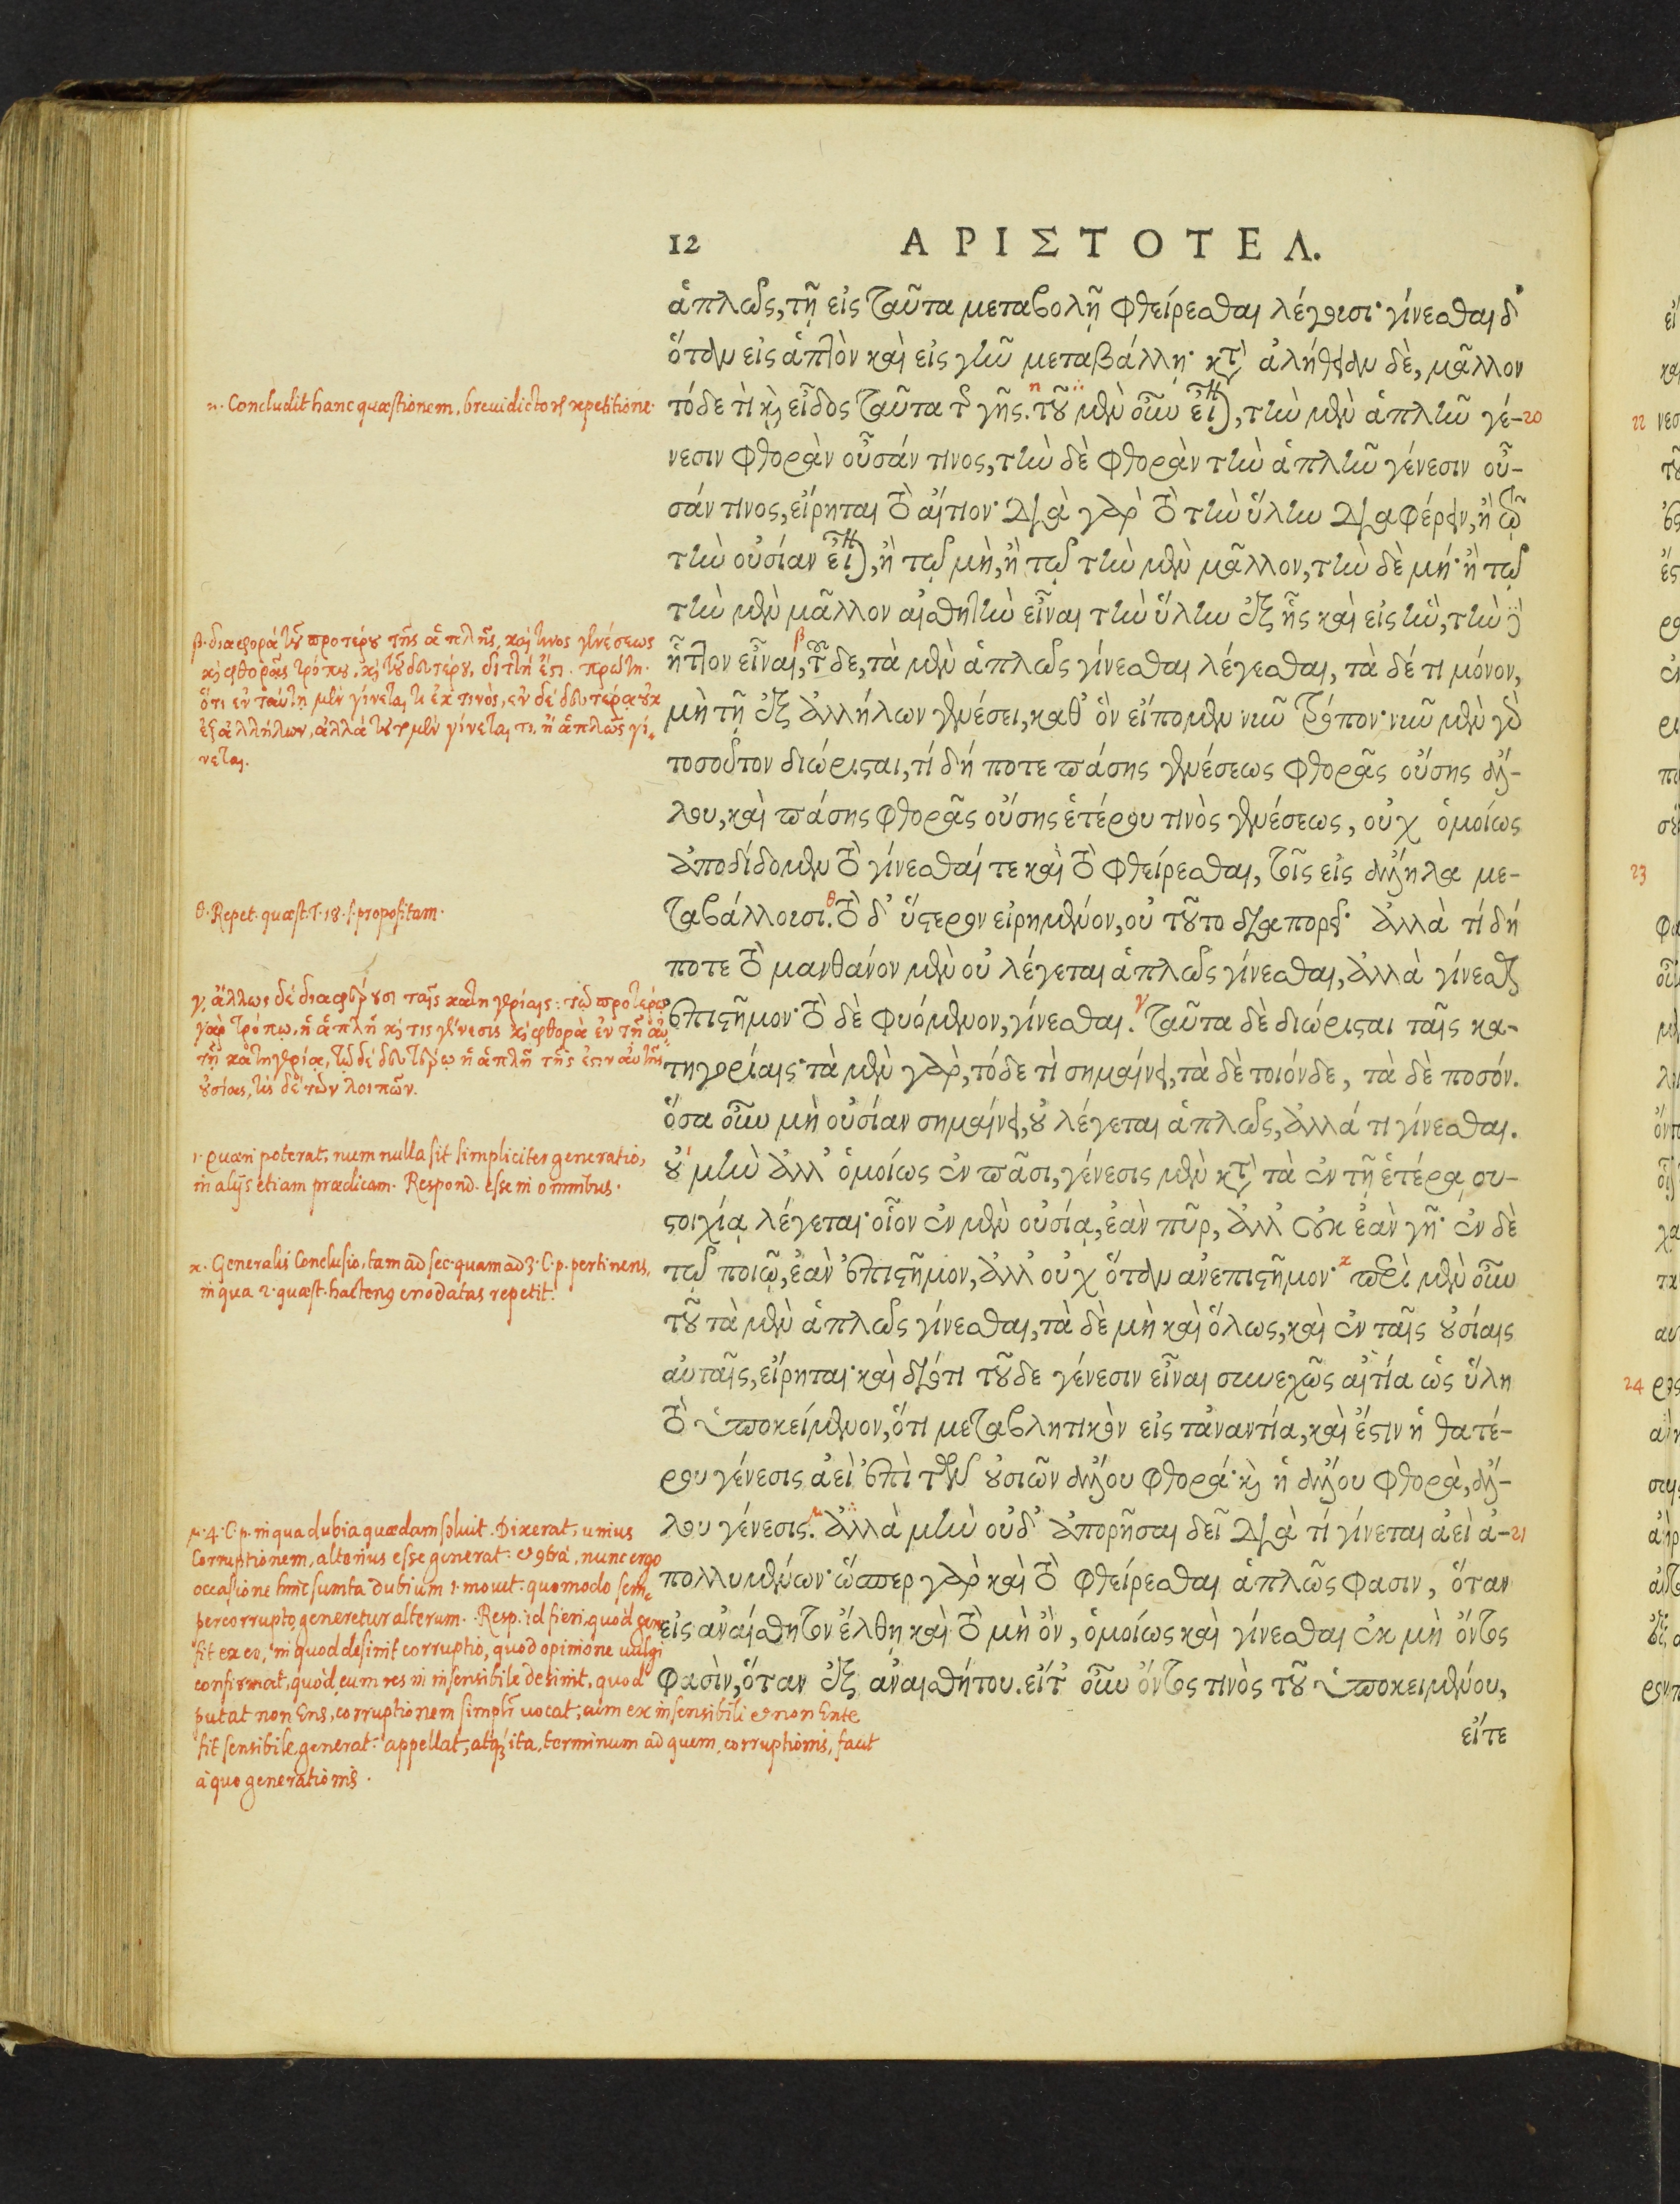 12 ΑΡΙΣΤΟΤΕΛ.
ἁπλῶς, τῇ εἰς ταῦτα μεταβολῇ φθείρεσθαι λέγουσι· γίνεσθαι δ'
ὅταν εἰς ἁπτὸν καὶ εἰς γῆν μεταβάλλῃ· κατ' ἀλήθειαν δὲ, μᾶλλον
τόδε τὶ καὶ εἶδος ταῦτα τῆς γῆς. η τοῦ μὲν οὖν εἶναι, τὴν μὲν ἁπλῆν γέ- 20
νεσιν φθορὰν οὖσάν τινος, τὴν δὲ φθορὰν τὴν ἁπλῆν γένεσιν οὖ-
σάν τινος, εἴρηται τὸ αἴτιον· διὰ γὰρ τὸ τὴν ὕλην διαφέρειν, ἢ τῷ
τὴν οὐσίαν εἶναι, ἢ τῷ μὴ, ἢ τῷ τὴν μὲν μᾶλλον, τὴν δὲ μή· ἢ τῷ
τὴν μὲν μᾶλλον αἰσθητὴν εἶναι τὴν ὕλην ἐξ ἧς καὶ εἰς ἣν, τὴν δὲ
ἧττον εἶναι, β τοῦ δε, τὰ μὲν ἁπλῶς γίνεσθαι λέγεσθαι, τὰ δέ τι μόνον,
μὴ τῇ ἐξ ἀλλήλων γενέσει, καθ' ὃν εἴπομεν νῦν τρόπον· νῦν μὲν γὰρ
τοσοῦτον διώρισται, τί δή ποτε πάσης γενέσεως φθορᾶς οὔσης ἄλ-
λου, καὶ πάσης φθορᾶς οὔσης ἑτέρου τινὸς γενέσεως, οὐχ ὁμοίως
ἀποδίδομεν τὸ γίνεσθαί τε καὶ τὸ φθείρεσθαι, τοῖς εἰς ἄλληλα με-
ταβάλλουσι. θ τὸ δ' ὕστερον εἰρημένον, οὐ τοῦτο διαπορεῖ· ἀλλὰ τί δή
ποτε τὸ μανθάνον μὲν οὐ λέγεται ἁπλῶς γίνεσθαι, ἀλλὰ γίνεσθαι
ἐπιστῆμον· τὸ δὲ φυόμενον, γίνεσθαι. γ ταῦτα δὲ διώρισται ταῖς κα-
τηγορίαις· τὰ μὲν γὰρ, τόδε τὶ σημαίνει, τὰ δὲ τοιόνδε, τὰ δὲ ποσόν.
ὅσα οὖν μὴ οὐσίαν σημαίνει, οὐ λέγεται ἁπλῶς, ἀλλά τι γίνεσθαι.
ι οὐ μὴν ἀλλ' ὁμοίως ἐν πᾶσι, γένεσις μὲν κατὰ τὰ ἐν τῇ ἑτέρᾳ συ-
στοιχίᾳ λέγεται· οἷον ἐν μὲν οὐσίᾳ, ἐὰν πῦρ, ἀλλ' οὐκ ἐὰν γῆ· ἐν δὲ
τῷ ποιῷ, ἐὰν ἐπιστῆμον, ἀλλ' οὐχ ὅταν ἀνεπιστῆμον· κ περὶ μὲν οὖν
τοῦ τὰ μὲν ἁπλῶς γίνεσθαι, τὰ δὲ μὴ καὶ ὅλως, καὶ ἐν ταῖς οὐσίαις
αὐταῖς, εἴρηται· καὶ διότι τοῦ δε γένεσιν εἶναι συνεχῶς αἰτία ὡς ὕλη
τὸ ὑποκείμενον, ὅτι μεταβλητικὸν εἰς τἀναντία, καὶ ἔστιν ἡ θατέ-
ρου γένεσις ἀεὶ ἐπὶ τῶν οὐσιῶν ἄλλου φθορά· καὶ ἡ ἄλλου φθορὰ, ἄλ-
λου γένεσις. μ ἀλλὰ μὴν οὐδ' ἀπορῆσαι δεῖ διὰ τί γίνεται ἀεὶ ἀ- 21
πολλυμένων· ὥσπερ γὰρ καὶ τὸ φθείρεσθαι ἁπλῶς φασιν, ὅταν
εἰς ἀναίσθητον ἔλθῃ καὶ τὸ μὴ ὂν, ὁμοίως καὶ γίνεσθαι ἐκ μὴ ὄντος
φασὶν, ὅταν ἐξ ἀναισθήτου. εἴτ' οὖν ὄντος τινὸς τοῦ ὑποκειμένου,
εἴτε
η. Concludit hanc quæstionem, brevi dictorum repetitione.
β. διαφορὰ τοῦ προτέρου τῆς ἁπλῆς, καὶ τινος γενέσεως
καὶ φθορᾶς τρόπου, καὶ τοῦ δευτέρου, διττή ἐστι. πρώτη.
ὅτι ἐν ταύτῃ μὲν γίνεται τι ἐκ τινὸς, ἐν δὲ δευτέρᾳ οὐκ
ἐξ ἀλλήλων, ἀλλὰ μὲν γίνεται τι, ἢ ἁπλῶς γί-
νεται.
θ. Repet. quæst. T. 18. s. propositam.
γ. ἄλλως δὲ διαφέρουσι ταῖς κατηγορίαις: τῷ προτέρῳ
γὰρ τρόπῳ, ἡ ἁπλῆ καὶ τις γένεσις καὶ φθορὰ ἐν τῇ αὐ-
τῇ κατηγορίᾳ, τῷ δὲ δευτέρῳ ἡ ἁπλῆ τῆς ἐστιν αὐτῆς
οὐσίας, τὶς δὲ τῶν λοιπῶν.
ι. Quæri poterat, num nulla sit simpliciter generatio,
in alijs etiam prædicam. Respond. esse in omnibus.
κ. Generalis Conclusio, tam ad sec. quam ad 3. C. p. pertinens,
in qua 2. quæst. hactenus enodatas repetit.
μ. 4. C. p. in qua dubia quædam soluit. Dixerat, unius
Corruptionem, alterius esse generat. & contrà, nunc ergo
occasione hinc sumta dubium 1. mouet. quomodo sem-
per corrupto, generetur alterum. Resp. id fieri, quòd gen.
fit ex eo, in quod desinit corruptio, quod opinione uulgi
confirmat, quòd, cum res in insensibile desinit, quod
putat non Ens, corruptionem simplr uocat, cùm ex insensibili & non Ente
fit sensibile, generat. appellat, atque ita, terminum ad quem, corruptionis, facit
à quo generationis.
22
23
24